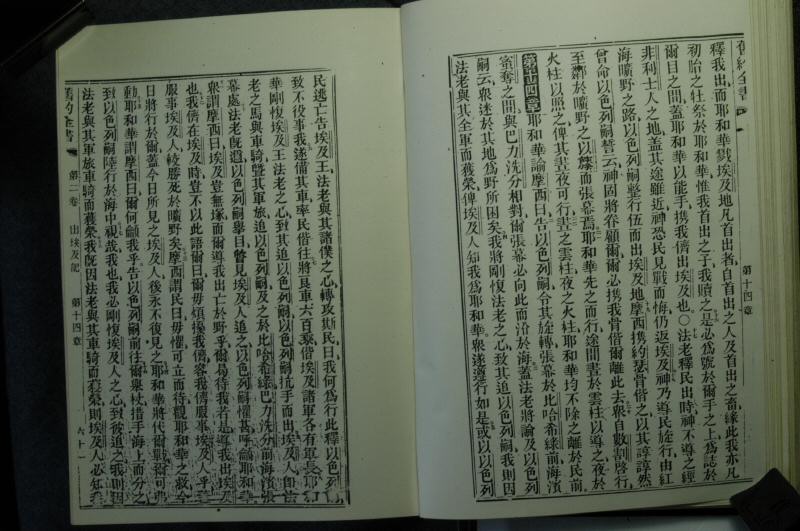 舊約全書
第十四章
釋我出而耶和華戮埃及地凡首出者自首出之人及首出之畜緣此我亦凡
初胎之牡祭於耶和華惟我首出之子我贖之是必為號於爾手之上為誌於
爾目之間蓋耶和華以能手攜我儕出埃及也〇法老釋民出時神不導之經
非利士人之地蓋其途雖近神恐民見戰而悔仍返埃及神乃導民旋行由紅
海曠野之路以色列嗣整行伍而出埃及地摩西攜約瑟骨偕之以其諄諄然
曾命以色列嗣誓云神固將眷顧爾爾必攜我骨偕爾離此去衆自數割啓行
至於曠野之以而張幕焉耶和華先之而行途間晝於雲柱以導之夜於
火柱以照之俾其晝夜可行晝之雲柱夜之火柱耶和華均不除之離於民前
第十四章耶和華諭摩西曰告以色列嗣令其旋轉張幕於比哈希綠前海濱
密奪之間與巴力洗分相對爾張幕必向此而沿於海蓋法老將論及以色列
嗣云衆迷於其地為野所困矣我將剛愎法老之心致其追以色列嗣我則因
法老與其全軍而獲榮俾埃及人知我為耶和華衆遂遵行如是或以以色列
民逃亡告埃及王法老與其諸僕之心轉攻斯民曰我何為行此釋以色列
致不役事我遂備其車率民偕往將良車六百乘偕埃及諸軍各有軍長耶和
華剛愎埃及王法老之心致其追以色列嗣以色列嗣抗手而出埃及人
老之馬與車騎暨其軍旅追以色列嗣及之於比哈希綠巴力洗分前海濱張
幕處法老既邇以色列嗣舉目瞥見埃及人追之以色列嗣懼甚呼籲耶和華
衆謂摩西曰埃及豈無塚而爾導我出亡於野乎爾曷待我若是導我出埃及
也我儕在埃及時豈不以此語爾曰爾毋煩擾我儕容我儕服事埃及人乎
服事埃及人較勝死於曠野矣摩西謂民曰毋懼可立而待觀耶和華之救今
日將行於爾蓋今日所見之埃及人後永不復見之耶和華將代爾戰爾可弗
動耶和華謂摩西曰爾何籲我乎告以色列嗣前往爾舉杖措手海上而分之
致以色列嗣陸行於海中視哉我也我必剛愎埃及人之心致彼追之我則因
法老與其軍旅車騎而獲榮我旣因法老與其車騎而獲榮則埃及人必知我
舊約全書
第二卷
出埃及記
第十四章
六十一